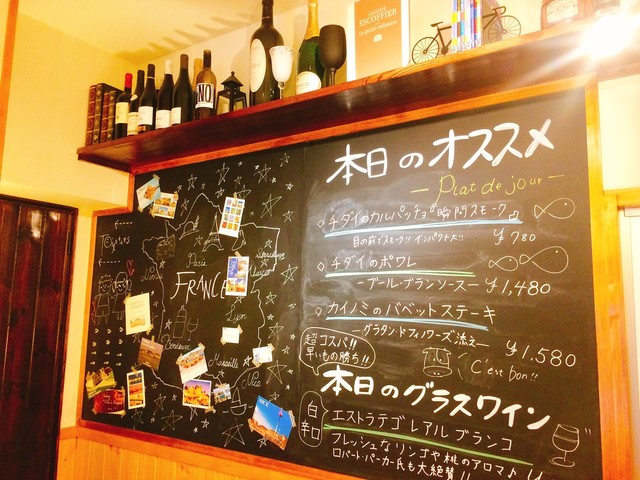 ESCOFFIER
本日のオススメ
— Plat de jour —
チダイのカルパッチョ"瞬間スモーク"
目の前でスモーク!! インパクト大!!
¥780
チダイのポワレ
—ブール・ブランソース—
¥1,480
カイノミのバベットステーキ
—グラタン・ドフィノワーズ添え—
¥1.580
超コスパ!!
早いもの勝ち!!
C'est bon!!
本日のグラスワイン
白
辛口
エストラテゴ レアル ブランコ
フレッシュなリンゴや桃のアロマ♪
ロバート・パーカー氏も大絶賛!!
Tours
Paris
FRANCE
Lyon
Bordeaux
Marseille
Nice